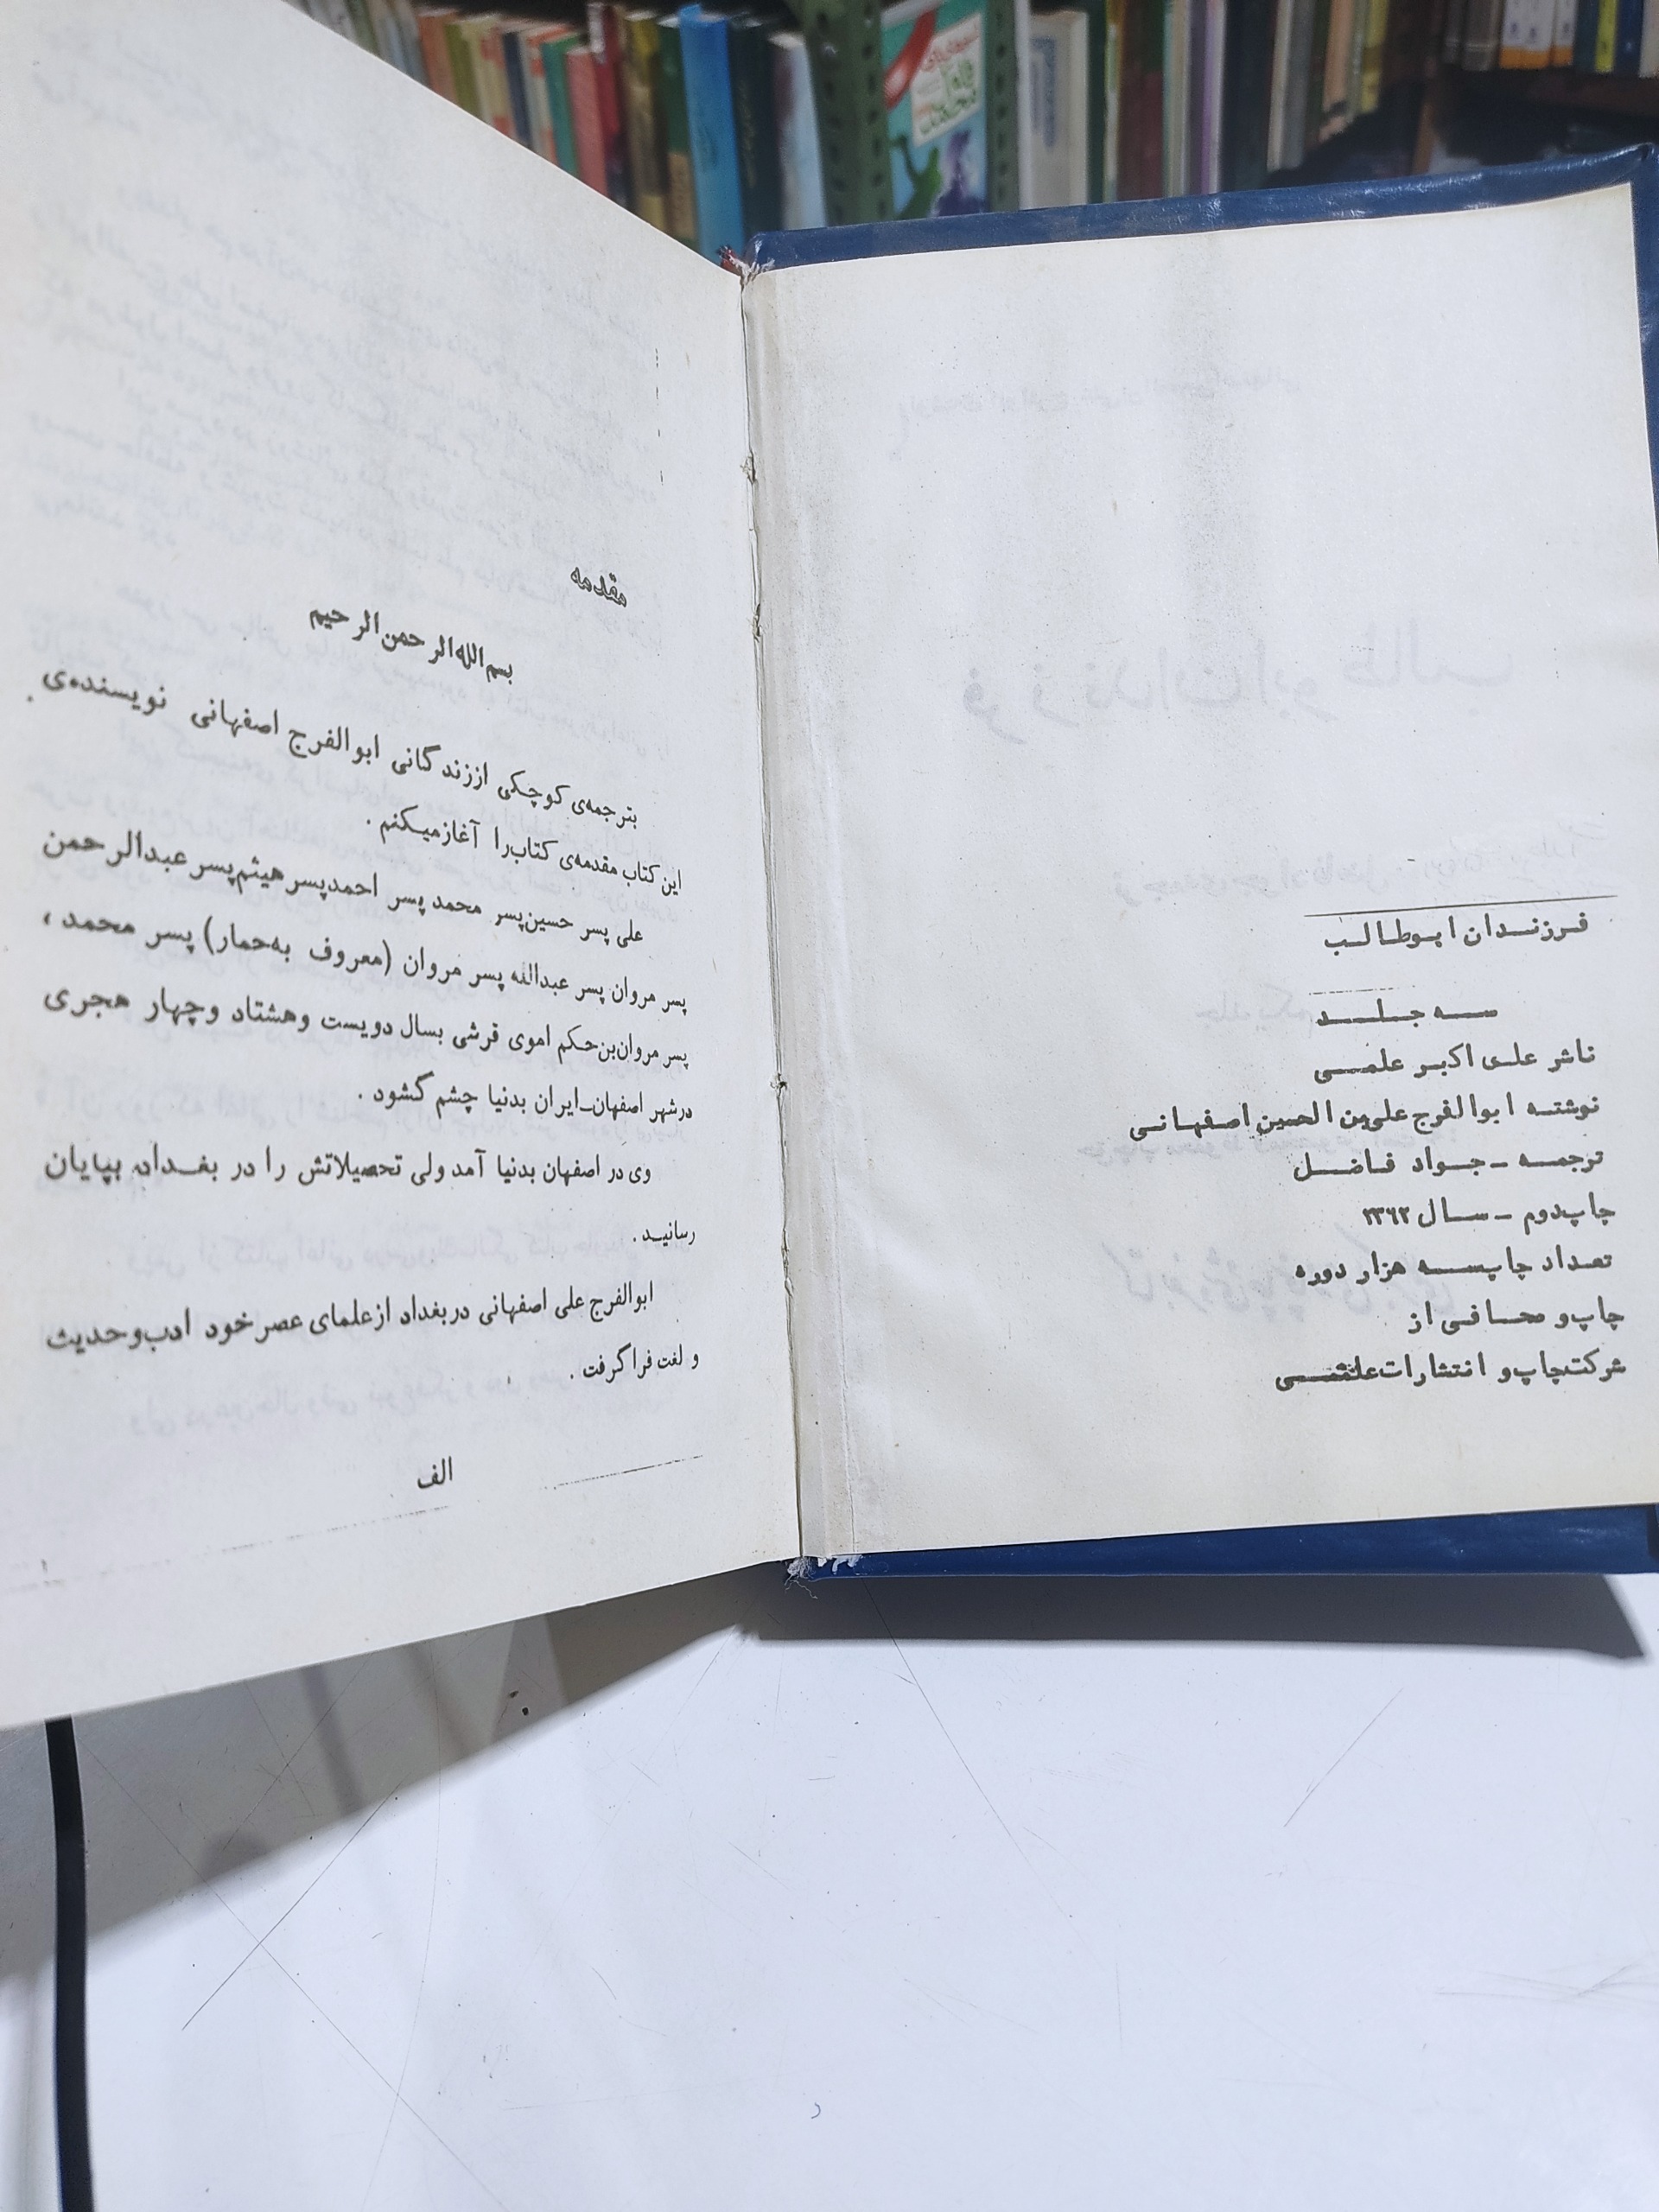 فرزندان ابوطالب
سه جلد
ناشر علی اکبر علمی
نوشته ابوالفرج علی‌بن الحسین اصفهانی
ترجمه - جواد فاضل
چاپ‌دوم - سال ۱۳۶۲
تعداد چاپ‌سه هزار دوره
چاپ و صحافی از
شرکت‌چاپ‌و انتشارات‌علمی
مقدمه
بسم‌الله‌الرحمن‌الرحیم
بترجمه‌ی کوچکی اززندگانی ابوالفرج اصفهانی نویسنده‌ی
این کتاب مقدمه‌ی کتاب‌را آغازمیکنم .
علی پسر حسین‌پسر محمد پسر احمدپسرهیثم‌پسر عبدالرحمن
پسر مروان پسر عبدالله پسر مروان (معروف به‌حمار) پسر محمد ،
پسر مروان‌بن‌حکم اموی قرشی بسال دویست وهشتاد وچهار هجری
درشهر اصفهان-ایران بدنیا چشم گشود .
وی در اصفهان بدنیا آمد ولی تحصیلاتش را در بغداد بپایان
رسانید .
ابوالفرج علی اصفهانی دربغداد ازعلمای عصر خود ادب‌وحدیث
و لغت فراگرفت .
الف